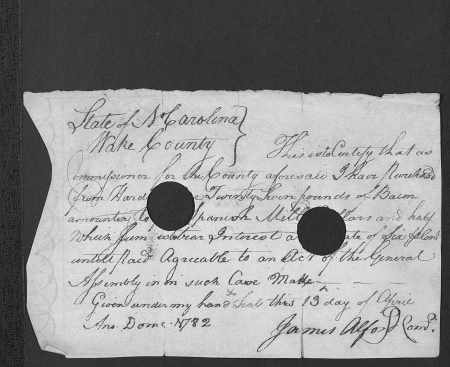 State of N Carolina
Wake County
This is to Certify that as
Commissioner for the County aforesaid I have Purchased
from Hard Twenty Seven pounds of Bacon
amounted to Spanish Mill Dollars and half
which Sum Bear Interest a ate of Six Cent
untill Paid Agreeable to an Act of the General
Assembly in in such Case Made
Given under my hand this 13 day of April
Ano Dome 1782
James Alford Comr.